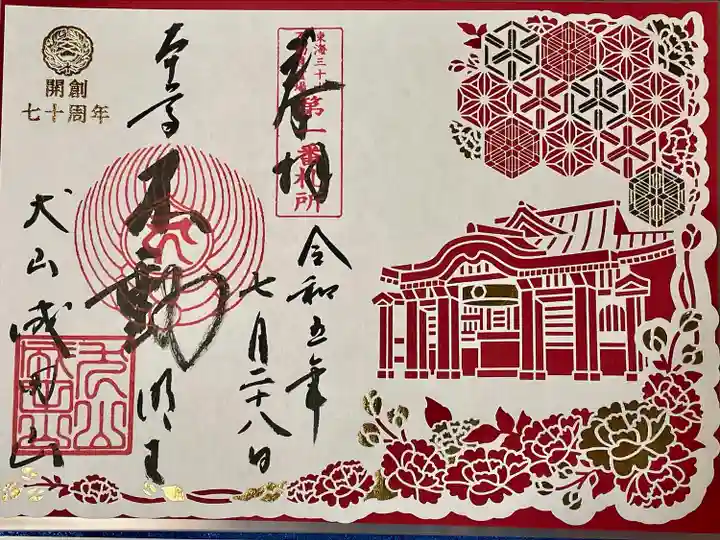 奉拝
東海三十六
不動尊霊場
第一番札所
令和五年
七月二十八日
本尊
不動明王
犬山成田山
開創
七十周年